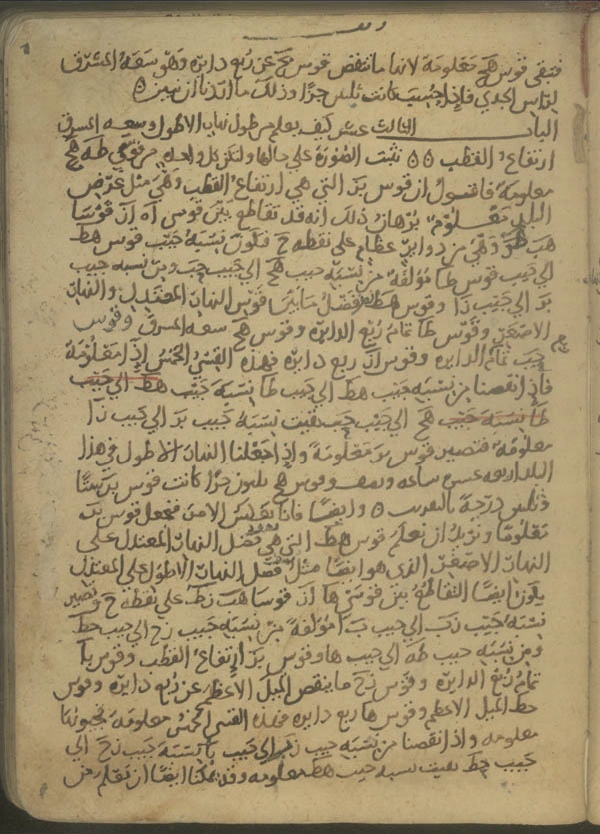 فتبقى قوس هح معلومة لانها ما تنقص قوس عن ربع دايره وهو سعة المشرق
لراس الجدي فاذا حسبت كانت ثلثين جزا وذلك ما اردنا ان نبين
الباب الثالث عشر كيف يعلم من طول نهار الاطول وسعه المشرق
ارتفاع القطب نثبت الصورة على حالها ولتكن كل واحده من قوسي طه هح
معلومة فاقول ان قوس بز التي هي ارتفاع القطب وهي مثل عرض
البلد معلوم برهان ذلك انه قد تقاطع بين قوس اه از قوسا
هب طز وهي من دواير عظام على نقطه ح فتكون نسبة جيب قوس هط
الى جيب قوس طا مؤلفة من نسبة جيب هح الى جيب حب ومن نسبه جيب
بز الى جيب زا وقوس هط فضل ما بين قوس النهار المعتدل والنهار
الاصغر وقوس طا تمام ربع الدايره وقوس هح سعه المشرق وقوس
حب تمام الدايره وقوس از ربع دايره فهذه القسي الخمس اذا معلومة
فاذا نقصنا من نسبه جيب هط الى جيب طا نسبة جيب هط الى جيب
طا نسبة جيب هح الى جيب حب بقيت نسبة جيب بز الى جيب زا
معلومة فتصير قوس بز معلومة واذا جعلنا النهار الاطول في هذا
البلد اربعه عشر ساعه ونصف وقوس هح ثلثون جزا كانت قوس بز ستا
وثلثين درجة بالتقريب وايضا فانا نعكس الامر فنجعل قوس بز
معلوما ونريد ان نعلم قوس هط التي هي فضل النهار المعتدل على
النهار الاصغر الذي هو ايضا مثل فضل النهار الاطول على المعتدل
يكون ايضا التقاطع بين قوسي ها از قوسا هب زط على نقطه ح وتصير
نسبة جيب زب الى جيب با مؤلفة من نسبة جيب زح الى جيب حط
ومن نسبة جيب طه الى جيب ها وقوس بز ارتفاع القطب وقوس با
تمام ربع الدايره وقوس زح ما ينقص الميل الاعظم عن ربع دايره وقوس
حط الميل الاعظم وقوس ها ربع دايره فهذه القسي الخمس معلومة فجيوبها
معلومه واذا نقصنا من نسبة جيب زب الى جيب با نسبة جيب زح الى
جيب حط بقيت نسبه جيب هط معلومه وقد يمكننا ايضا ان نعلم من